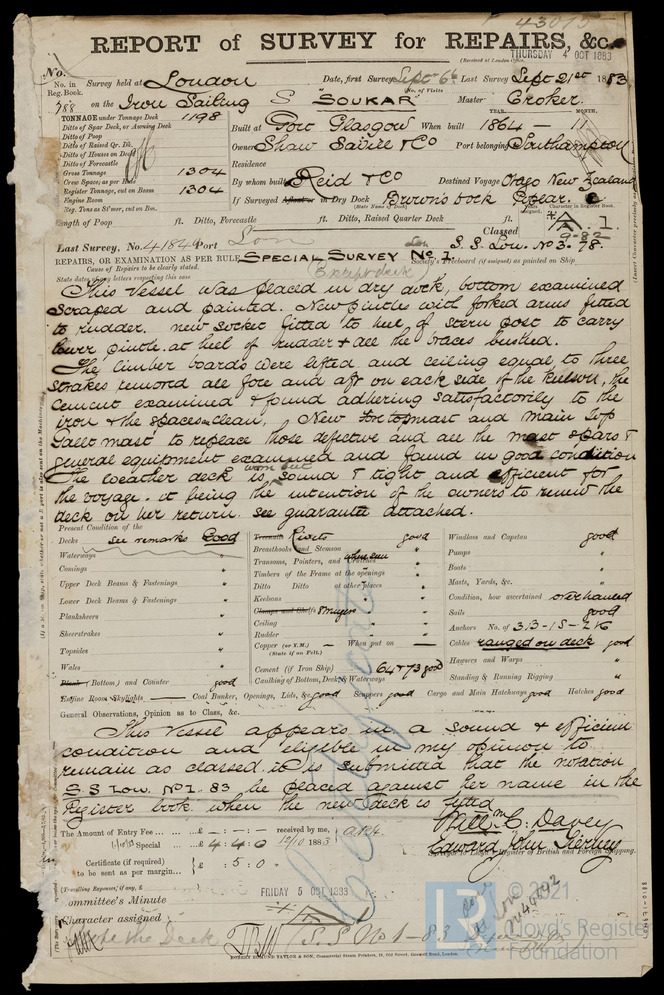 43075
REPORT of SURVEY for REPAIRS, &c.
(Received at London Office,
THURSDAY 4 OCT 1883
No.
No. in Reg. Book. Survey held at London Date, first Survey Sept 6th Last Survey Sept 21st 1883
No. of Visits
on the Iron Sailing S "SOUKAR" Master Croker.
TONNAGE under Tonnage Deck 1198
YEAR. MONTH.
Ditto of Spar Deck, or Awning Deck
Built at Port Glasgow When built 1864 - 11
Ditto of Poop
Ditto of Raised Qr. Dk.
Owner Shaw Savill & Co Port belonging Southampton
Ditto of Houses on Deck
Ditto of Forecastle
Residence
Gross Tonnage 1304
Crew Space; as per Rule
By whom built Reid & Co Destined Voyage Otago New Zealand
Register Tonnage, cut on Beam 1304
Engine Room
If Surveyed Afloat or in Dry Dock
Reg. Tons as St'mer, cut on Bm.
Length of Poop ft. Ditto, Forecastle ft. Ditto, Raised Quarter Deck ft.
Classed A. 1.
9-82
Last Survey, No. 4184 Port Lon S.S. Lon. No 3. 78.
REPAIRS, OR EXAMINATION AS PER RULE, SPECIAL SURVEY No. 1.
Cause of Repairs to be clearly stated. Except deck
This Vessel was placed in dry dock, bottom examined
scraped and painted. New pintles with forked arms fitted
to rudder. new socket fitted to heel of stern post to carry
lower pintle at heel of rudder & all the braces bushed.
The limber boards were lifted and ceiling equal to three
strakes removed all fore and aft on each side of the keelson, the
cement examined & found adhering satisfactorily to the
iron & the spaces clean. New Foretopmast and main top
Gallt mast to replace those defective and all the mast spars &
general equipment examined and found in good condition
worn but
The weather deck is sound & tight and efficient for
the voyage. it being the intention of the owners to renew the
deck on her return. see guarantee attached.
Present Condition of the
Decks see remarks Good
Waterways "
Comings "
Upper Deck Beams & Fastenings "
Lower Deck Beams & Fastenings "
Planksheers "
Sheerstrakes "
Topsides "
Wales "
Plank (Bottom) and Counter good
Treenails Rivets good
Breasthooks and Stemson "
Transoms, Pointers, and Crutches where seen "
Timbers of the Frame at the openings "
Ditto Ditto at other places "
Keelsons "
Clamps and Shelfs Stringers "
Ceiling "
Rudder "
Copper (or Y.M.) — When put on —
(State if on Felt.)
Cement (if Iron Ship) 64 & 73 good
Caulking of Bottom, Deck, & Waterways "
Windlass and Capstan good
Pumps "
Boats "
Masts, Yards, &c. "
Condition, how ascertained overhauled
Sails good
Anchors No. of 3B-1S-2K
Cables ranged on deck good
Hawsers and Warps "
Standing & Running Rigging "
Engine Room Skylights — Coal Bunker, Openings, Lids, &c. good Scuppers good Cargo and Main Hatchways good Hatches good
General Observations, Opinion as to Class, &c.
This Vessel appears in a sound & efficient
condition and eligible in my opinion to
remain as classed it is submitted that the notation
S S Lon. No 1. 83 be placed against her name in the
Register book when the new deck is fitted
The Amount of Entry Fee ... £ - : - : - received by me,
Special ... £ 4 : 4 : 0 12/10 1883
Certificate (if required) £ : 5 : 0
to be sent as per margin...
Willm C. Davey
Edward John Tierney
Surveyor to Lloyd's Register of British and Foreign Shipping.
(Travelling Expenses, if any, £
Committee's Minute FRIDAY 5 OCT 1883
Character assigned
S.S No 1-83
ROBERT EDMUND TAYLOR & SON, Commercial Steam Printers, 19, Old Street, Goswell Road, London.
LR
© 2021
Lloyd's Register
Foundation